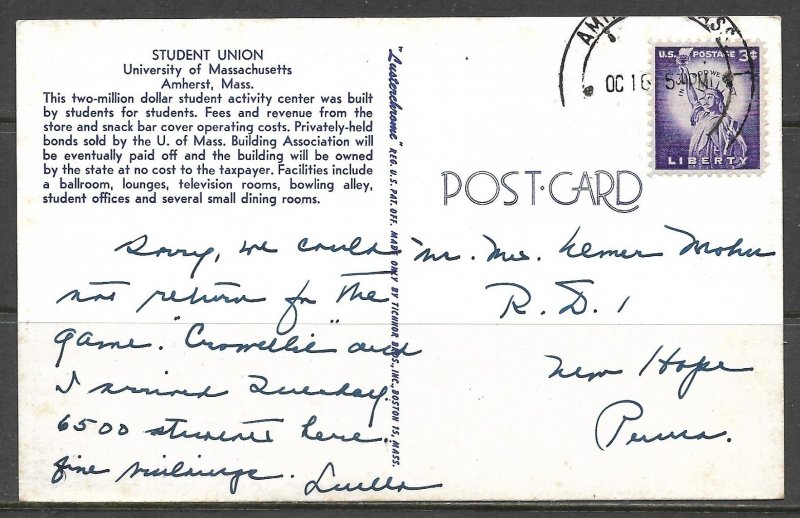 STUDENT UNION
University of Massachusetts
Amherst, Mass.
This two-million dollar student activity center was built
by students for students. Fees and revenue from the
store and snack bar cover operating costs. Privately-held
bonds sold by the U. of Mass. Building Association will
be eventually paid off and the building will be owned
by the state at no cost to the taxpayer. Facilities include
a ballroom, lounges, television rooms, bowling alley,
student offices and several small dining rooms.
Sorry, we could
not return for the
game. "Crowellie" and
I arrived Tuesday.
6500 students here.
fine buildings.
Luella
"Lusterchrome" REG. U.S. PAT. OFF. MADE ONLY BY TICHNOR BROS., INC., BOSTON 15, MASS.
OC 16 5
U.S. POSTAGE 3¢
IN GOD WE TRUST
LIBERTY
POST-CARD
Mr. Mrs. Elmer
R.D. 1
New Hope
Penna.